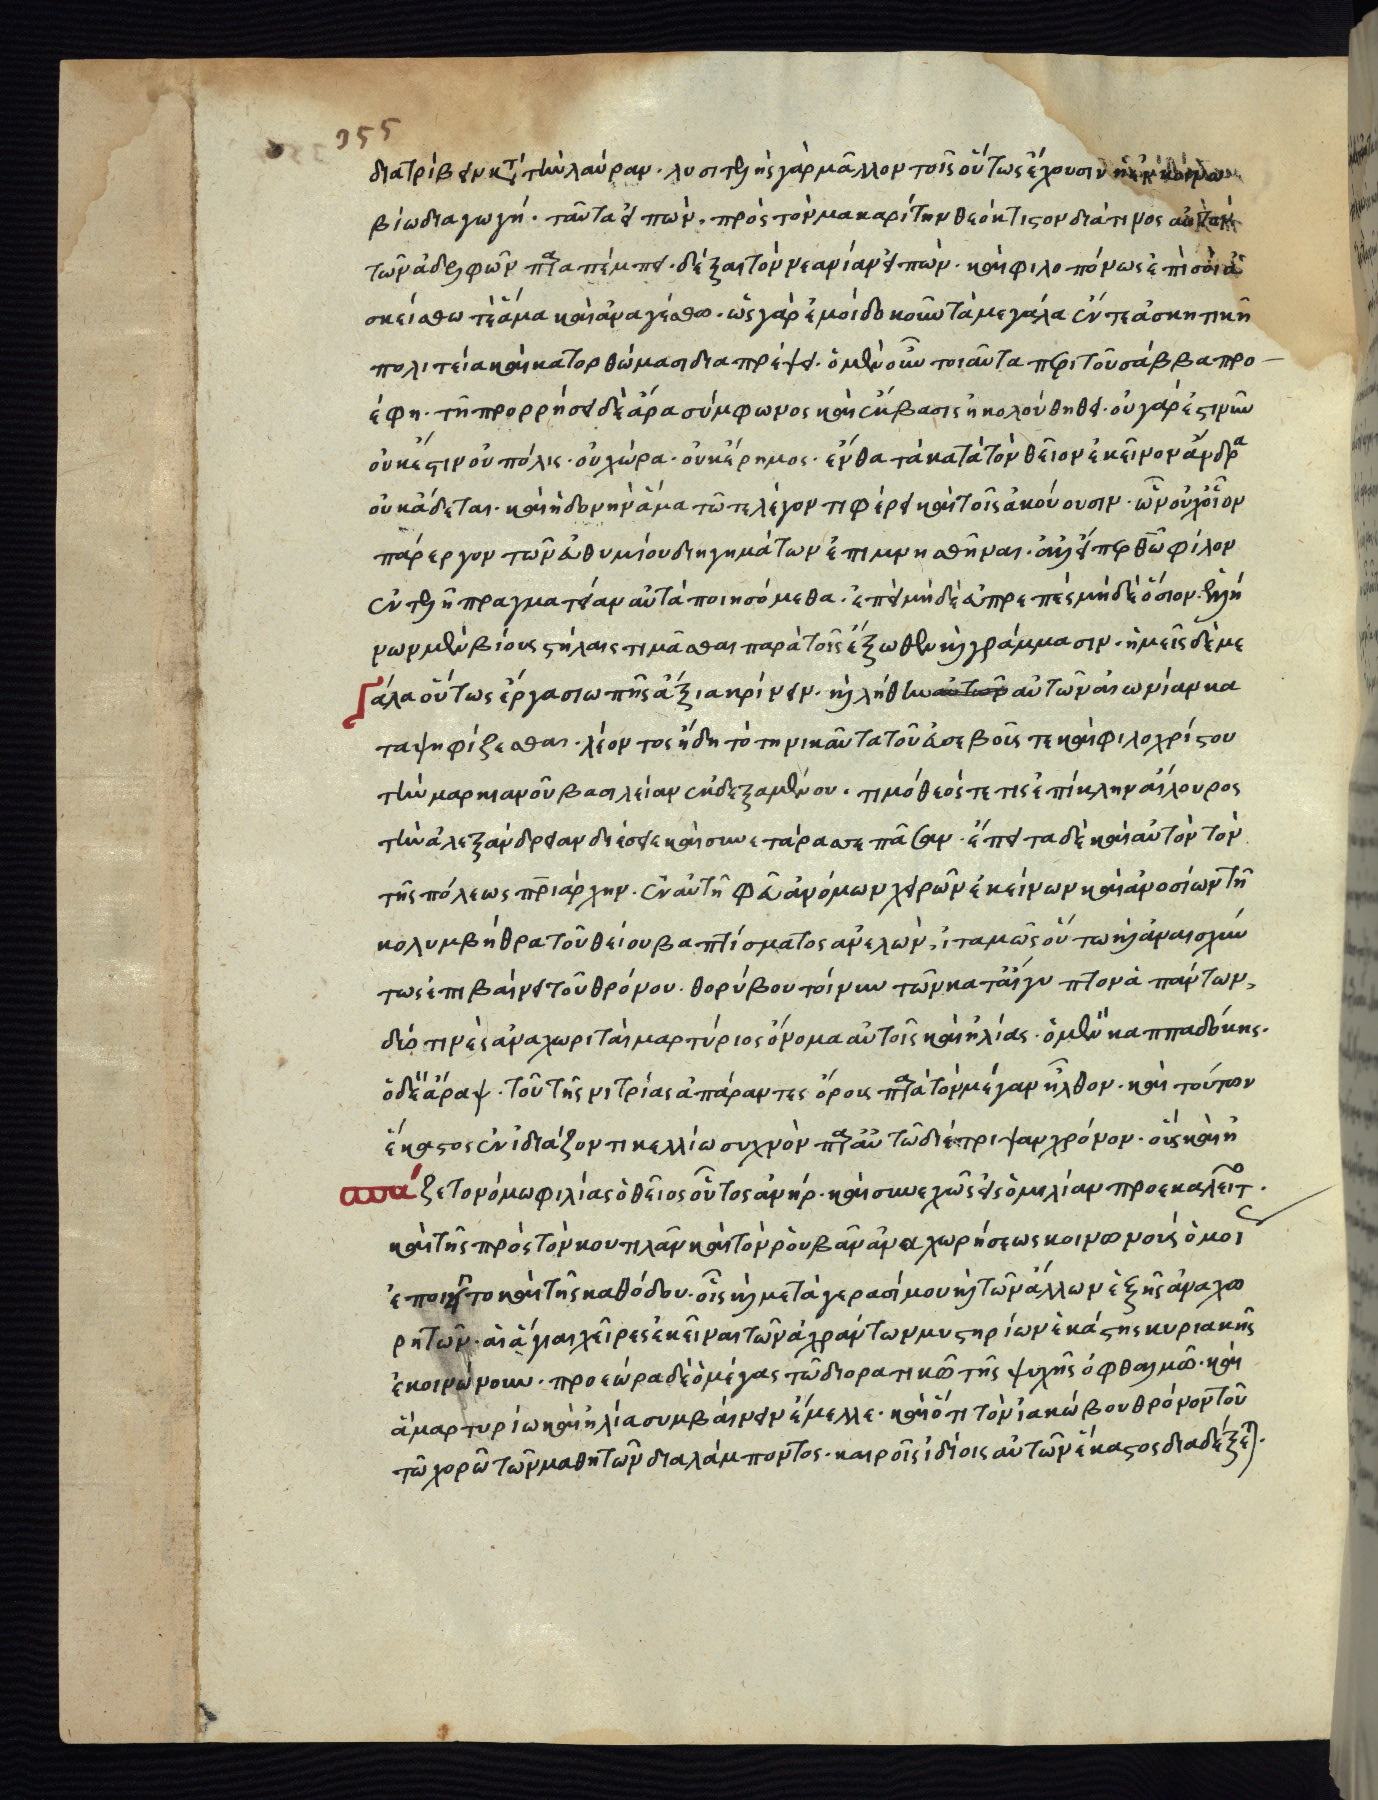 355
διατρίβειν κατὰ τὴν λαύραν· λυσιτελὴς γὰρ μᾶλλον τοῖς οὕτως ἔχουσιν ἡ ἐν κοινῷ
βίω διαγωγή· ταῦτα εἰπὼν, πρὸς τὸν μακαρίτην θεόκτιστον διά τινος αὐτὸν
τῶν ἀδελφῶν παραπέμπει· δέξαι τὸν νεανίαν εἰπὼν· καὶ φιλοπόνως ἐπὶ σοὶ ἀ
σκείσθω τὲ ἅμα καὶ ἀναγέσθω· ὡς γὰρ ἐμοὶ δοκοῦν τὰ μεγάλα ἔν τε ἀσκητικῆ
πολιτεία καὶ κατορθώμασι διαπρέψει· ὁ μὲν οὖν τοιαῦτα περὶ τοῦ σάββα προ
έφη· τῆ προρρήσει δὲ ἄρα σύμφωνος καὶ ἔκβασις ἠκολούθηθει· οὐ γάρ ἐστιν οὖν
οὐκ ἔστιν οὐ πόλις· οὐ χώρα· οὐκ έρημος· ἔνθα τὰ κατὰ τὸν θεῖον ἐκεῖνον ἄνδρα
οὐκ άδεται· καὶ ἡδονὴν ἅμα τῶ τε λέγοντι φέρει καὶ τοῖς ἀκούουσιν· ὧν οὐχ οἷον
πάρεργον τῶν εὐθυμίου διηγημάτων ἐπιμνησθῆναι· ἀλλ' εἴπερ θεῶ φίλον
ἐν τελῆ πραγματείαν αὐτὰ ποιησόμεθα· ἐπεὶ μὴδὲ εὐπρεπὲς μὴδὲ ὅσιον· ἑλλή
νων μὲν βίους στήλαις τιμᾶσθαι παρὰ τοῖς ἔξωθεν καὶ γράμμασιν· ἡμεῖς δὲ με
γάλα οὕτως ἔργα σιωπῆς ἄξια κρίνειν· καὶ λήθην αὐτῶν αὐτῶν αἰωνίαν κα
ταψηφίζεσθαι· λέοντος ἤδη τὸ τηνικαῦτα τοῦ εὐσεβοῦς τε καὶ φιλοχρίστου
τὴν μαρκιανοῦ βασιλείαν ἐκδεξαμένου· τιμόθεός τέ τις ἐπίκλην αἴλουρος
τὴν ἀλεξάνδρειαν διέσεισε καὶ συνετάρασσε πᾶσαν· ἔπειτα δὲ καὶ αὐτὸν τὸν
τῆς πόλεως πατριάρχην· ἐν αὐτῆ φεῦ ἀνόμων χειρῶν ἐκείνων καὶ ἀνοσίων τῆ
κολυμβήθρα τοῦ θείου βαπτίσματος ἀνελών, ἰταμῶς οὕτω καὶ ἀναισχύν
τως ἐπιβαίνει τοῦ θρόνου· θορύβου τοίνυν τῶν κατ' αἴγυπτον ἁπάντων,
δύο τινὲς ἀναχωριταὶ μαρτύριος ὄνομα αὐτοῖς καὶ ἠλίας· ὁ μὲν καππαδόκης·
ὁ δὲ ἄραψ· τοῦ τῆς νιτρίας ἀπάραντες ὄρους παρὰ τὸν μέγαν ἦλθον· καὶ τούτων
ἕκαστος ἐν ἰδιάζοντι κελλίω συχνὸν παρ' αὐτῶ διέτριψαν χρόνον· οὓς καὶ ἠ
σπάζετο νόμω φιλίας ὁ θεῖος οὗτος ἀνήρ· καὶ συνεχῶς εἰς ὁμιλίαν προεκαλεῖτο·
καὶ τῆς πρὸς τὸν κουτιλᾶν καὶ τὸν ῥουβᾶν ἀναχωρήσεως κοινωνοὺς ὁμοῦ
ἐποιεῖτο καὶ τῆς καθόδου· οἷς καὶ μετὰ γερασίμου καὶ τῶν ἄλλων ἑξῆς ἀναχω
ρητῶν· αἱ ἅγιαι χεῖρες ἐκεῖναι τῶν ἀχράντων μυστηρίων ἑκάστης κυριακῆς
ἐκοινώνουν· προεώρα δὲ ὁ μέγας τῶ διορατικῶ τῆς ψυχῆς ὀφθαλμῶ· καὶ
ἃ μαρτυρίω καὶ ἠλία συμβαίνειν έμελλε· καὶ ὅτι τὸν ἰακώβου θρόνον τοῦ
τῶ χορῶ τῶν μαθητῶν διαλάμποντος· καιροῖς ἰδίοις αὐτῶν ἕκαστος διαδέξεται·